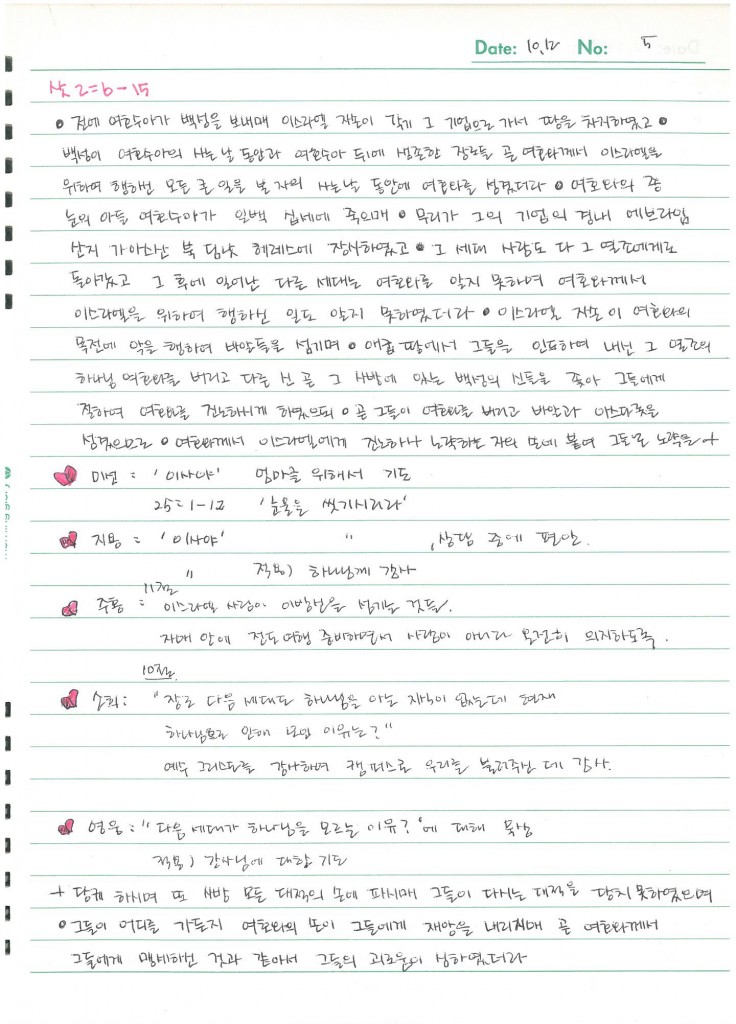 Date: 10.12 No: 5
삿 2=6-15
• 전에 여호수아가 백성을 보내매 이스라엘 자손이 각기 그 기업으로 가서 땅을 차지하였고 •
백성이 여호수아의 사는 날 동안과 여호수아 뒤에 생존한 장로들 곧 여호와께서 이스라엘을
위하여 행하신 모든 큰 일을 본 자의 사는 날 동안에 여호와를 섬겼더라 • 여호와의 종
눈의 아들 여호수아가 일백 십세에 죽으매 • 무리가 그의 기업의 경내 에브라임
산지 가아스산 북 딤낫 헤레스에 장사하였고 • 그 세대 사람도 다 그 열조에게로
돌아갔고 그 후에 일어난 다른 세대는 여호와를 알지 못하며 여호와께서
이스라엘을 위하여 행하신 일도 알지 못하였더라 • 이스라엘 자손이 여호와의
목전에 악을 행하여 바알들을 섬기며 • 애굽 땅에서 그들을 인도하여 내신 그 열조의
하나님 여호와를 버리고 다른 신 곧 그 사방에 있는 백성의 신들을 좇아 그들에게
절하여 여호와를 진노하시게 하였으되 • 곧 그들이 여호와를 버리고 바알과 아스다롯을
섬겼으므로 • 여호와께서 이스라엘에게 진노하사 노략하는 자의 손에 붙여 그들로 노략을 +
미션 = '이사야' 엄마를 위해서 기도
25=1-12 '눈물을 씻기시리라'
지용 = '이사야' " , 상담 중에 편안.
" 적용) 하나님께 감사
11절
주황 = 이스라엘 사람이 이방신을 섬기는 것들.
자매 안에 전도여행 준비하면서 사람이 아니라 온전히 의지하도록.
10절
소희: "장로 다음 세대도 하나님을 아는 지식이 없는데 현재
하나님으로 안에 모인 이유는?"
예수 그리스도를 감사하며 캠퍼스로 우리를 불러주신 데 감사.
영웅 = "다음 세대가 하나님을 모르는 이유?"에 대해 묵상
적용) 간사님에 대한 기도
+ 당케 하시며 또 사방 모든 대적의 손에 파시매 그들이 다시는 대적을 당치 못하였으며
• 그들이 어디를 가든지 여호와의 손이 그들에게 재앙을 내리시매 곧 여호와께서
그들에게 맹세하신 것과 같아서 그들의 괴로움이 심하였더라